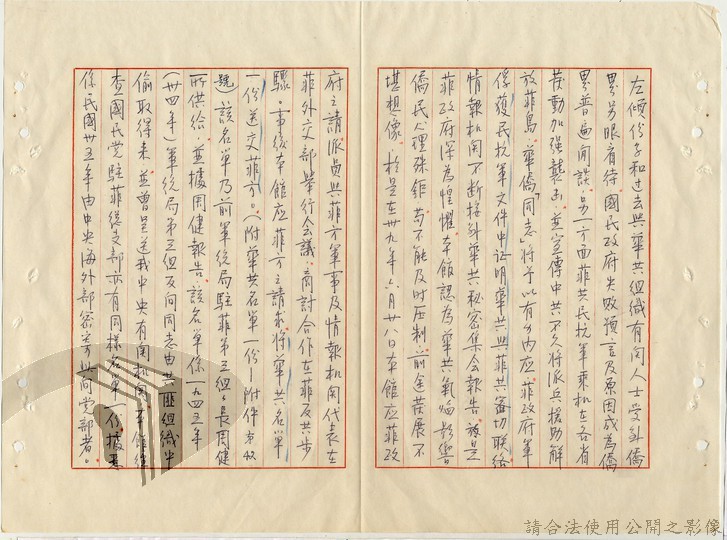 左傾份子和过去與華共組織有関人士受到僑
界另眼看待國民政府失敗預言及原因成為僑
界普遍閒談另一方面菲共民抗軍乘机在各省
發動加强襲击並宣傳中共不久將派兵援助解
放菲島華僑「同志」將予以有力内应菲政府軍
俘獲民抗軍文件中证明華共與菲共密切联络
情報机関不断接到華共秘密集会報告於是
菲政府深為惶懼本館認為華共氣焰影響
僑民心理殊鉅苟不能及时压制前途發展不
堪想像於是在卅九年六月廿八日本館应菲政
府之請派員與菲方軍事及情報机関代表在
菲外交部舉行会議商討合作在菲反共步
驟事後本館应菲方之請求將華共名單
一份送交菲方。(附華共名單一份—附件
號)該名單乃前軍统局駐菲第三組組長周健
所供给並據周健報告該名單係一九四五年
(卅四年)軍统局第三组反间同志由共匪组織中
偷取得来並曾呈送我中央有関机関本館經
查國民党駐菲總支部亦有同樣名單一份據悉
係民國卅五年由中央海外部密寄與同党部者。
請合法使用公開之影像